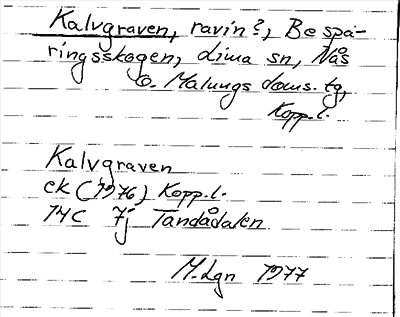 Kalvgraven, ravin?, Bespa-
ringsskogen, Lima sn, Nås
o. Malungs doms. tg,
Kopp.l.
Kalvgraven
ek (1976) Kopp.l.
14C 7j Tandådalen
M.Lgn 1977